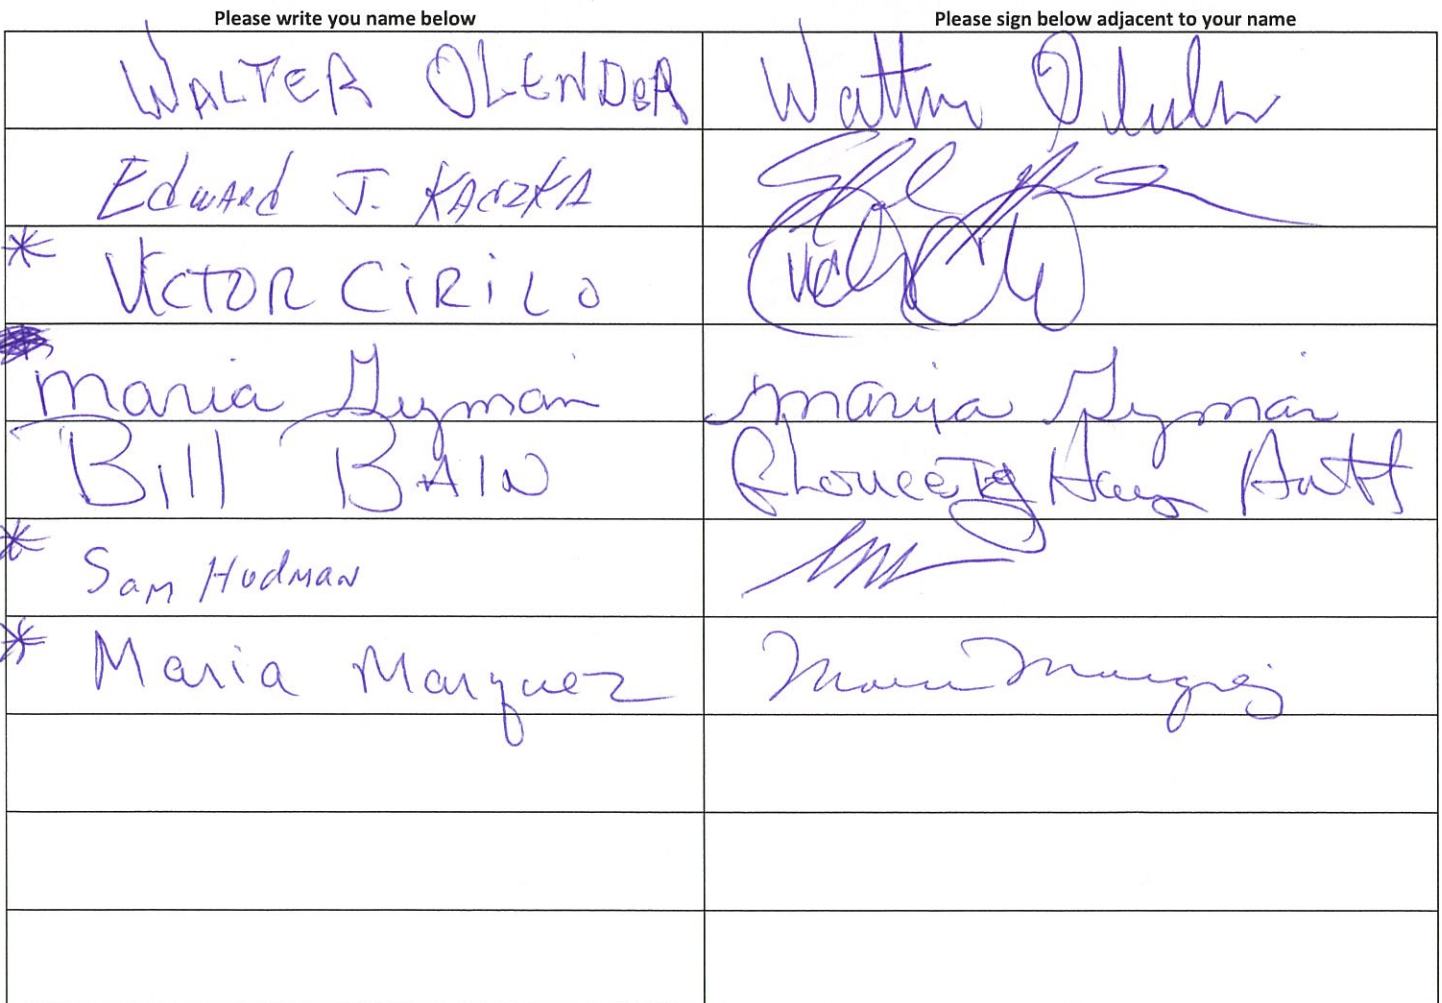 Please write you name below Please sign below adjacent to your name
WALTER OLENDER Walter Olender
Edward J. KACZKA
* VICTOR CIRILO
Maria Guzman Mariya Guzman
Bill BAIN Gloucester Hous Auth
* Sam Hudman
* Maria Marquez Maria Marquez